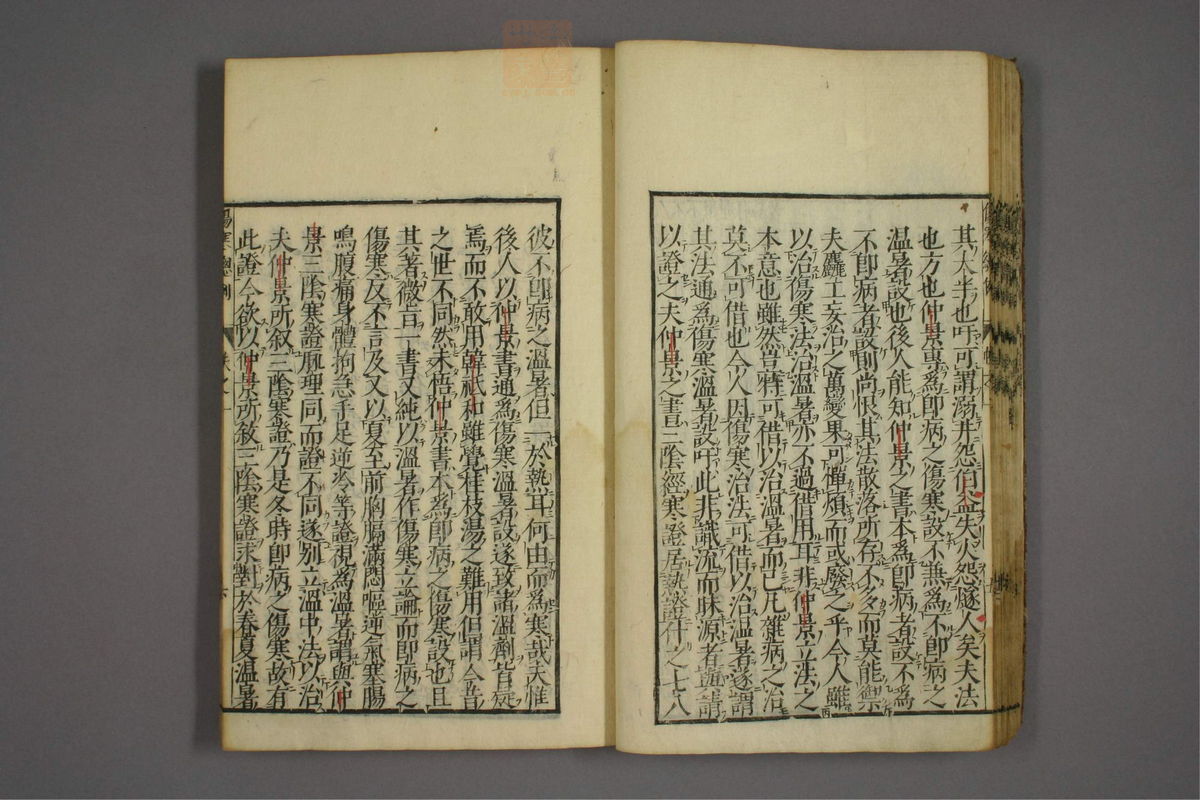 其大半也吁可謂溺井怨伯益失火怨燧人矣夫法
也方也仲景專爲即病之傷寒設不兼爲不即病之
温暑設也後人能知仲景之書本爲即病者設不爲
不即病者設則尚恨其法散落所存不多而莫能禦
夫麤工妄治之萬變果可憚煩而或廢之乎今人雖
以治傷寒法治温暑亦不過借用耳非仲景立法之
本意也雖然豈特可借以治温暑而已凡雜病之治
莫不可借也今人因傷寒治法可借以治温暑遂謂
其法通爲傷寒温暑設吁此非識流而昧源者歟請
以證之夫仲景之書三陰經寒證居熱證什之七八
彼不即病之温暑但一於熱耳何由而爲寒哉夫惟
後人以仲景書通爲傷寒温暑設遂致諸温劑皆疑
焉而不敢用韓祗和雖覺桂枝湯之難用但謂今昔
之世不同然未悟仲景書本爲即病之傷寒設也且
其著微言一書又純以温暑作傷寒立論而即病之
傷寒反不言及又以夏至前胸膈滿悶嘔逆氣塞腸
鳴腹痛身體拘急手足逆冷等證視爲温暑謂與仲
景三陰寒證脈理同而證不同遂別立温中法以治
夫仲景所敘三陰寒證乃是冬時即病之傷寒故有
此證今欲以仲景所敘三陰寒證求對於春夏温暑